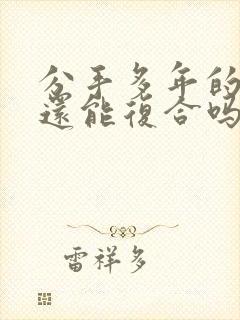 分手多年的
還能復合吗
雷祥多